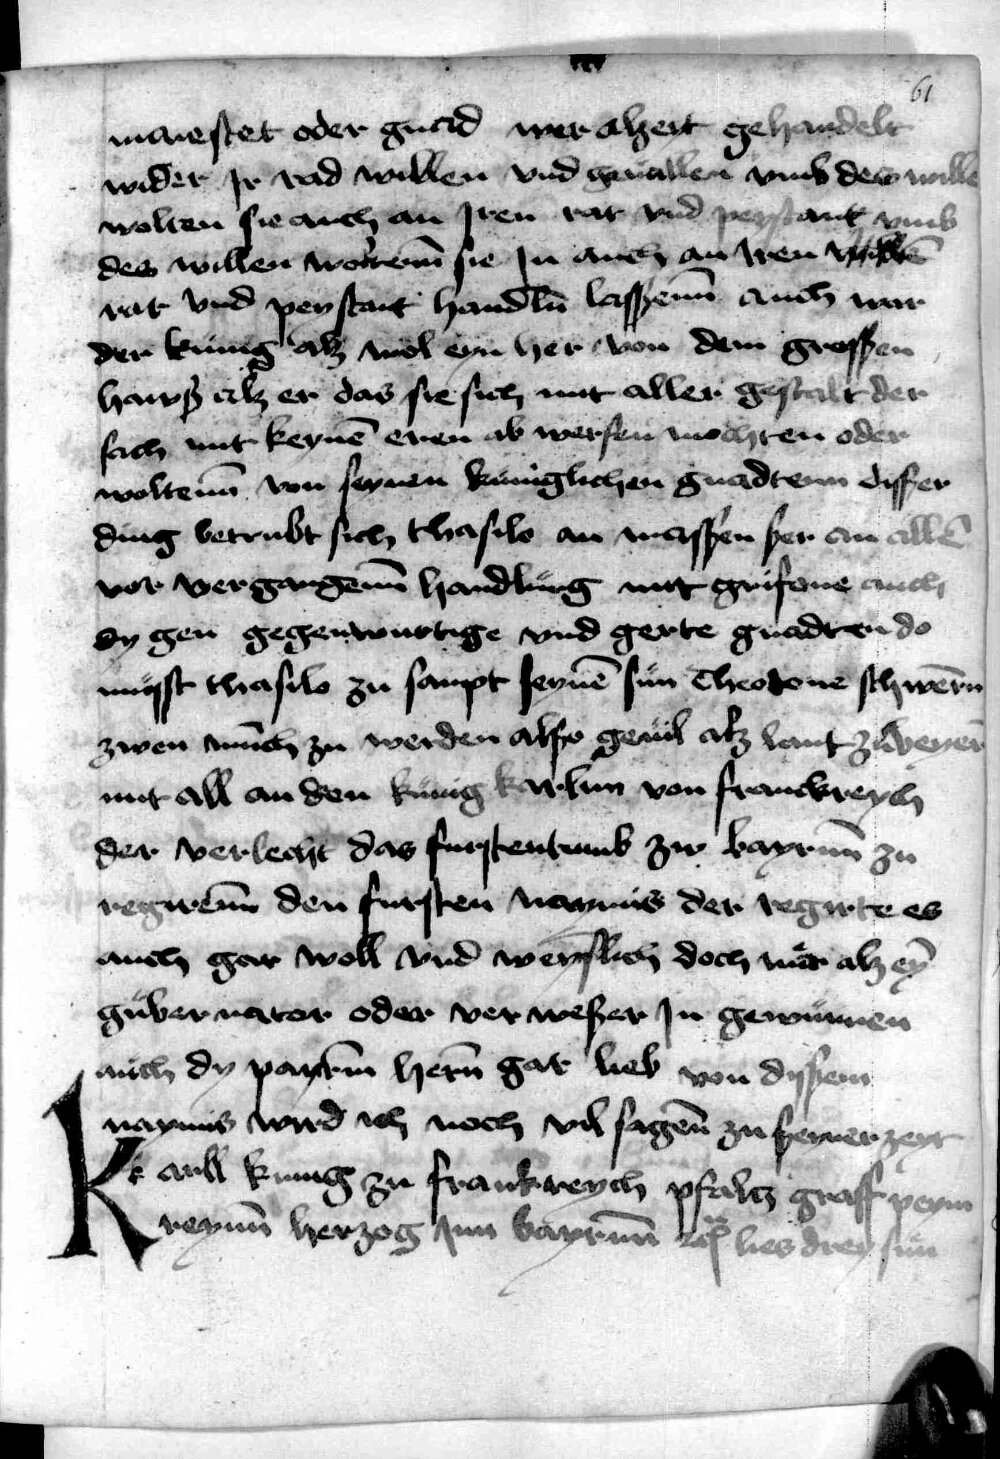 61
maiestet oder gnad wer alzeyt gehandelt
wider Jr rad willen vnd geuallen vmb des wille
wolten sie auch an Jren rat vnd peystant vmb
des willen woltenn sie Jn auch an Jren
rat vnd peystant handlñ lassenn auch war
der kunig alz wol eyn her von dem grossen
hawß alz er das sie sich mit aller gestalt der
sach mit keynē eren ab werfen mochten oder
woltenn von seynen küniglichen gnadtenn disser
ding betrubt sich thasilo an massen ser an allē
vor vergangenn handlüng mit grifone auch
dy gen gegenwurtige vnd gerte gnadten do
müsst thasilo zu sampt seynē sün Theodone schwern
zwen münch zu werden also geuil alz lant zu beyern
mit all an den künig karlun von franckreych
der verlecht das furstentumb zw bayrnn zu
regirenn den fursten naymis der regirte es
auch gar woll vnd weyslich doch nür alz eȳ
gübernator oder verweßer Jn gewünnen
aüch dy payrnn hern̄ gar lieb von dyssem
naymis wird ich noch vil sagen̄ zu seyner zeyt
Karll kunig zu frankreych pfaltz graff peym
reynn herzog Jnn bayrnn lies drey sün